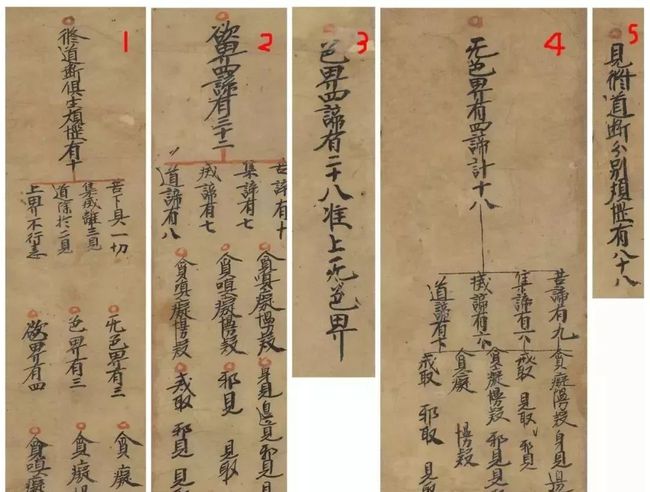 1
修道断俱生煩惱有十
苦下具一切
集滅離三見
道除於二見
上界不行恚
无色界有三
色界有三
欲界有四
貪癡
貪癡
貪嗔癡
2
欲界四諦有三十二
苦諦有十
集諦有七
滅諦有七
道諦有八
貪嗔癡慢疑
貪嗔癡慢疑
貪嗔癡慢疑
身見邊見邪見
邪見
見取
戒取邪見見
3
色界四諦有二十八准上无色界
4
无色界有四諦計十八
苦諦有九
集諦有六
滅諦有六
道諦有
貪癡慢疑身見邊
戒取見取邪見
貪癡慢疑邪見見
貪癡
慢疑
戒取邪取見
5
見修道断分别煩惱有八十八